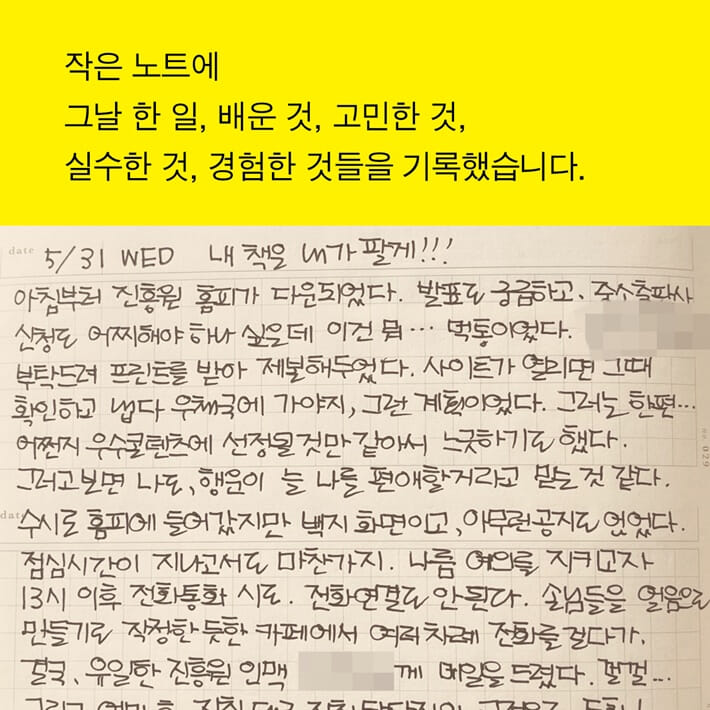 작은 노트에
그날 한 일, 배운 것, 고민한 것,
실수한 것, 경험한 것들을 기록했습니다.
date 5/31 WED 내 책은 내가 팔게!!!
아침부터 진흥원 홈피가 다운되었다. 발표도 궁금하고, 중소출판사
신청도 어찌해야 하나 싶은데 이건 뭐… 먹통이었다.
부탁드려 프린트를 받아 제본해두었다. 사이트가 열리면 그때
확인하고 냅다 우체국에 가야지, 그런 계획이었다. 그러는 한편…
어쩐지 우수콘텐츠에 선정될 것만 같아서 느긋하기도 했다.
no. 029
그러고보면 나도, 행운이 늘 나를 편애할거라고 믿는 것 같다.
date 수시로 홈피에 들어갔지만 백지 화면이고, 아무런 공지도 없었다.
점심시간이 지나고서도 마찬가지. 나름 예의를 지키고자
13시 이후 전화통화 시도. 전화연결도 안된다. 손님들을 얼음으로
만들기로 작정한 듯한 카페에서 여러차례 전화를 걸다가,
결국, 유일한 진흥원 인맥 께 메일을 드렸다. 껄껄…